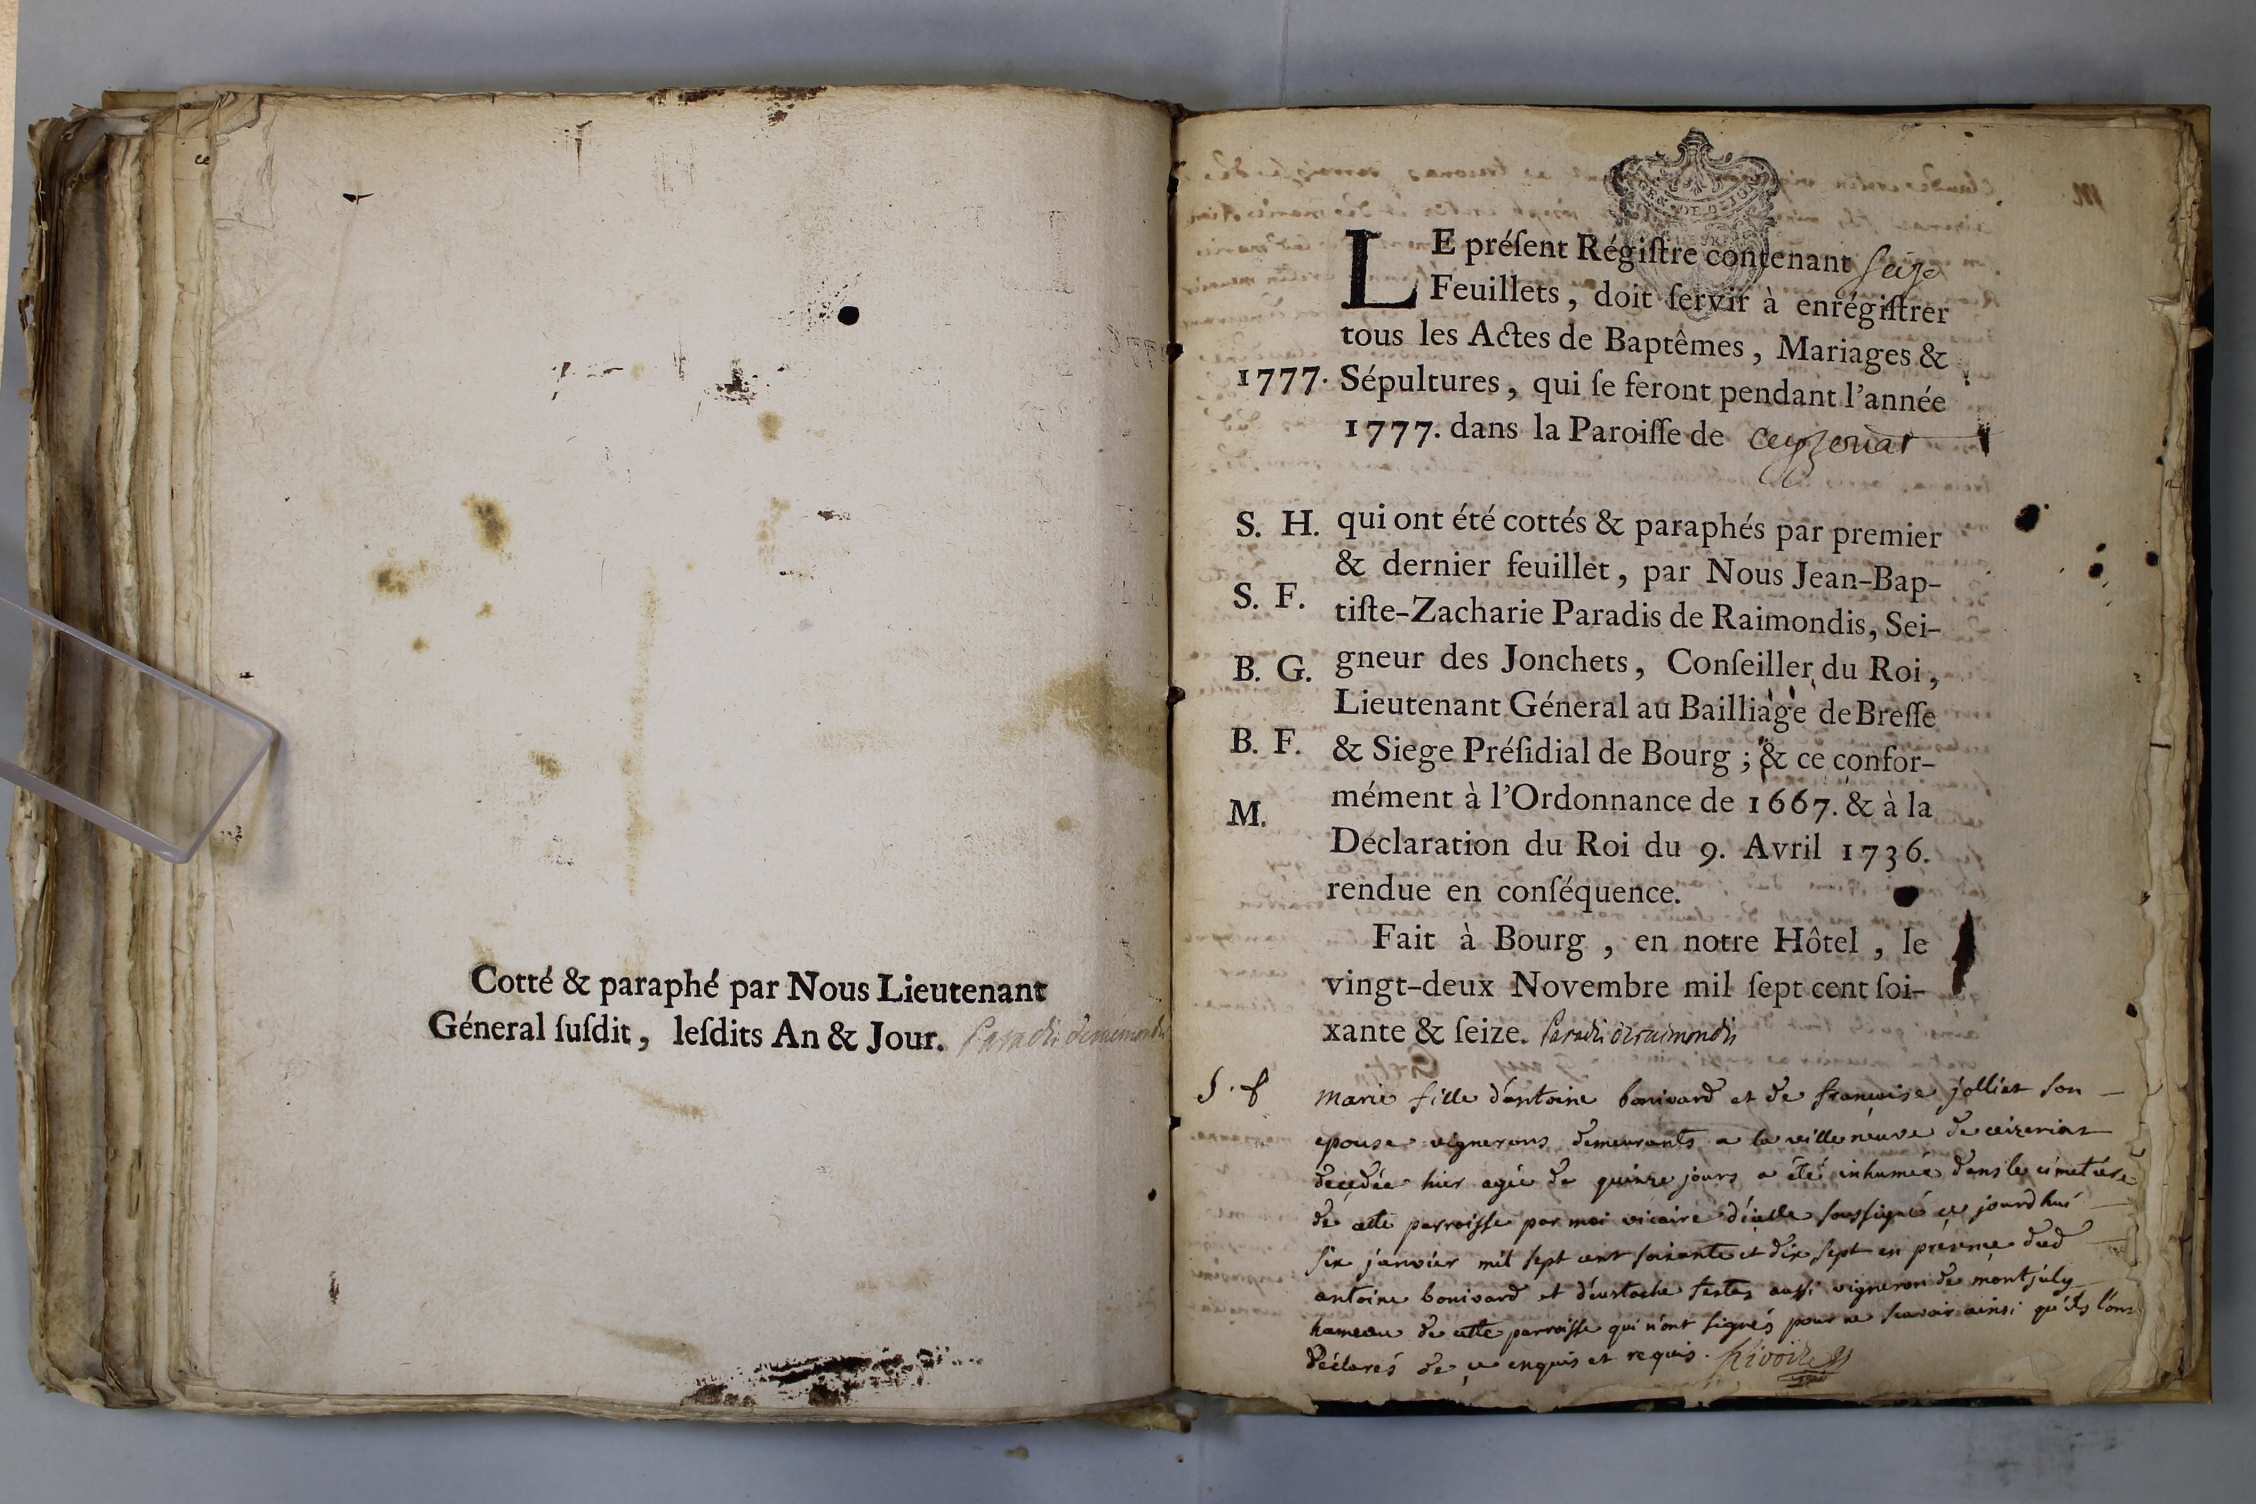 Cotté & paraphé par Nous Lieutenant
Géneral ſuſdit, leſdits An & Jour. Paradis deraimondis
LE préſent Régiſtre contenant seize
Feuillets, doit ſervir à enrégiſtrer
tous les Actes de Baptêmes, Mariages &
1777. Sépultures, qui ſe feront pendant l'année
1777. dans la Paroiſſe de ceyzeriat
S. H. qui ont été cottés & paraphés par premier
& dernier feuillet, par Nous Jean-Bap-
S. F. tiſte-Zacharie Paradis de Raimondis, Sei-
B. G. gneur des Jonchets, Conſeiller du Roi,
Lieutenant Géneral au Bailliage de Breſſe
B. F. & Siege Préſidial de Bourg; & ce confor-
mément à l'Ordonnance de 1667. & à la
M. Déclaration du Roi du 9. Avril 1736.
rendue en conſéquence.
Fait à Bourg, en notre Hôtel, le
vingt-deux Novembre mil ſept cent ſoi-
xante & ſeize. Paradis deraimondis
S. f marie fille d'antoine bonivard et de francoise jolliet son
epouse vignerons demeurants a la villeneuve de ceizeriat
decedée hier agée de quinze jours a été inhumée dans le cimetiere
de cette parroisse par moi vicaire d'icelle soussigné ce jourdhui
six janvier mil sept cent soixante et dix sept en presence dud
antoine bonivard et d'eustache testes aussi vigneron de montjuly
hameau de cette parroisse qui n'ont signés pour ne scavoir ainsi qu'ils l'ont
déclarés de ce enquis et requis. hivoire